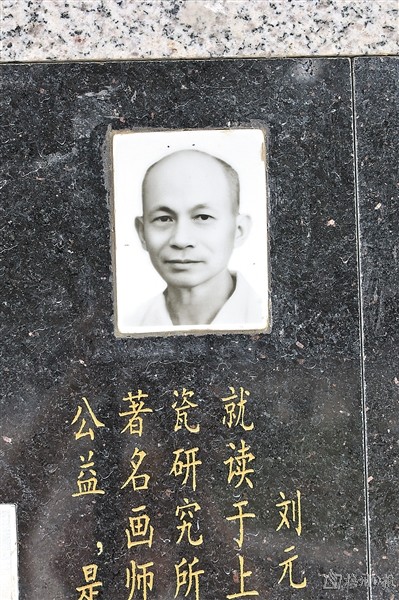 刘元
就读于上
瓷研究所
著名画师
公益，是